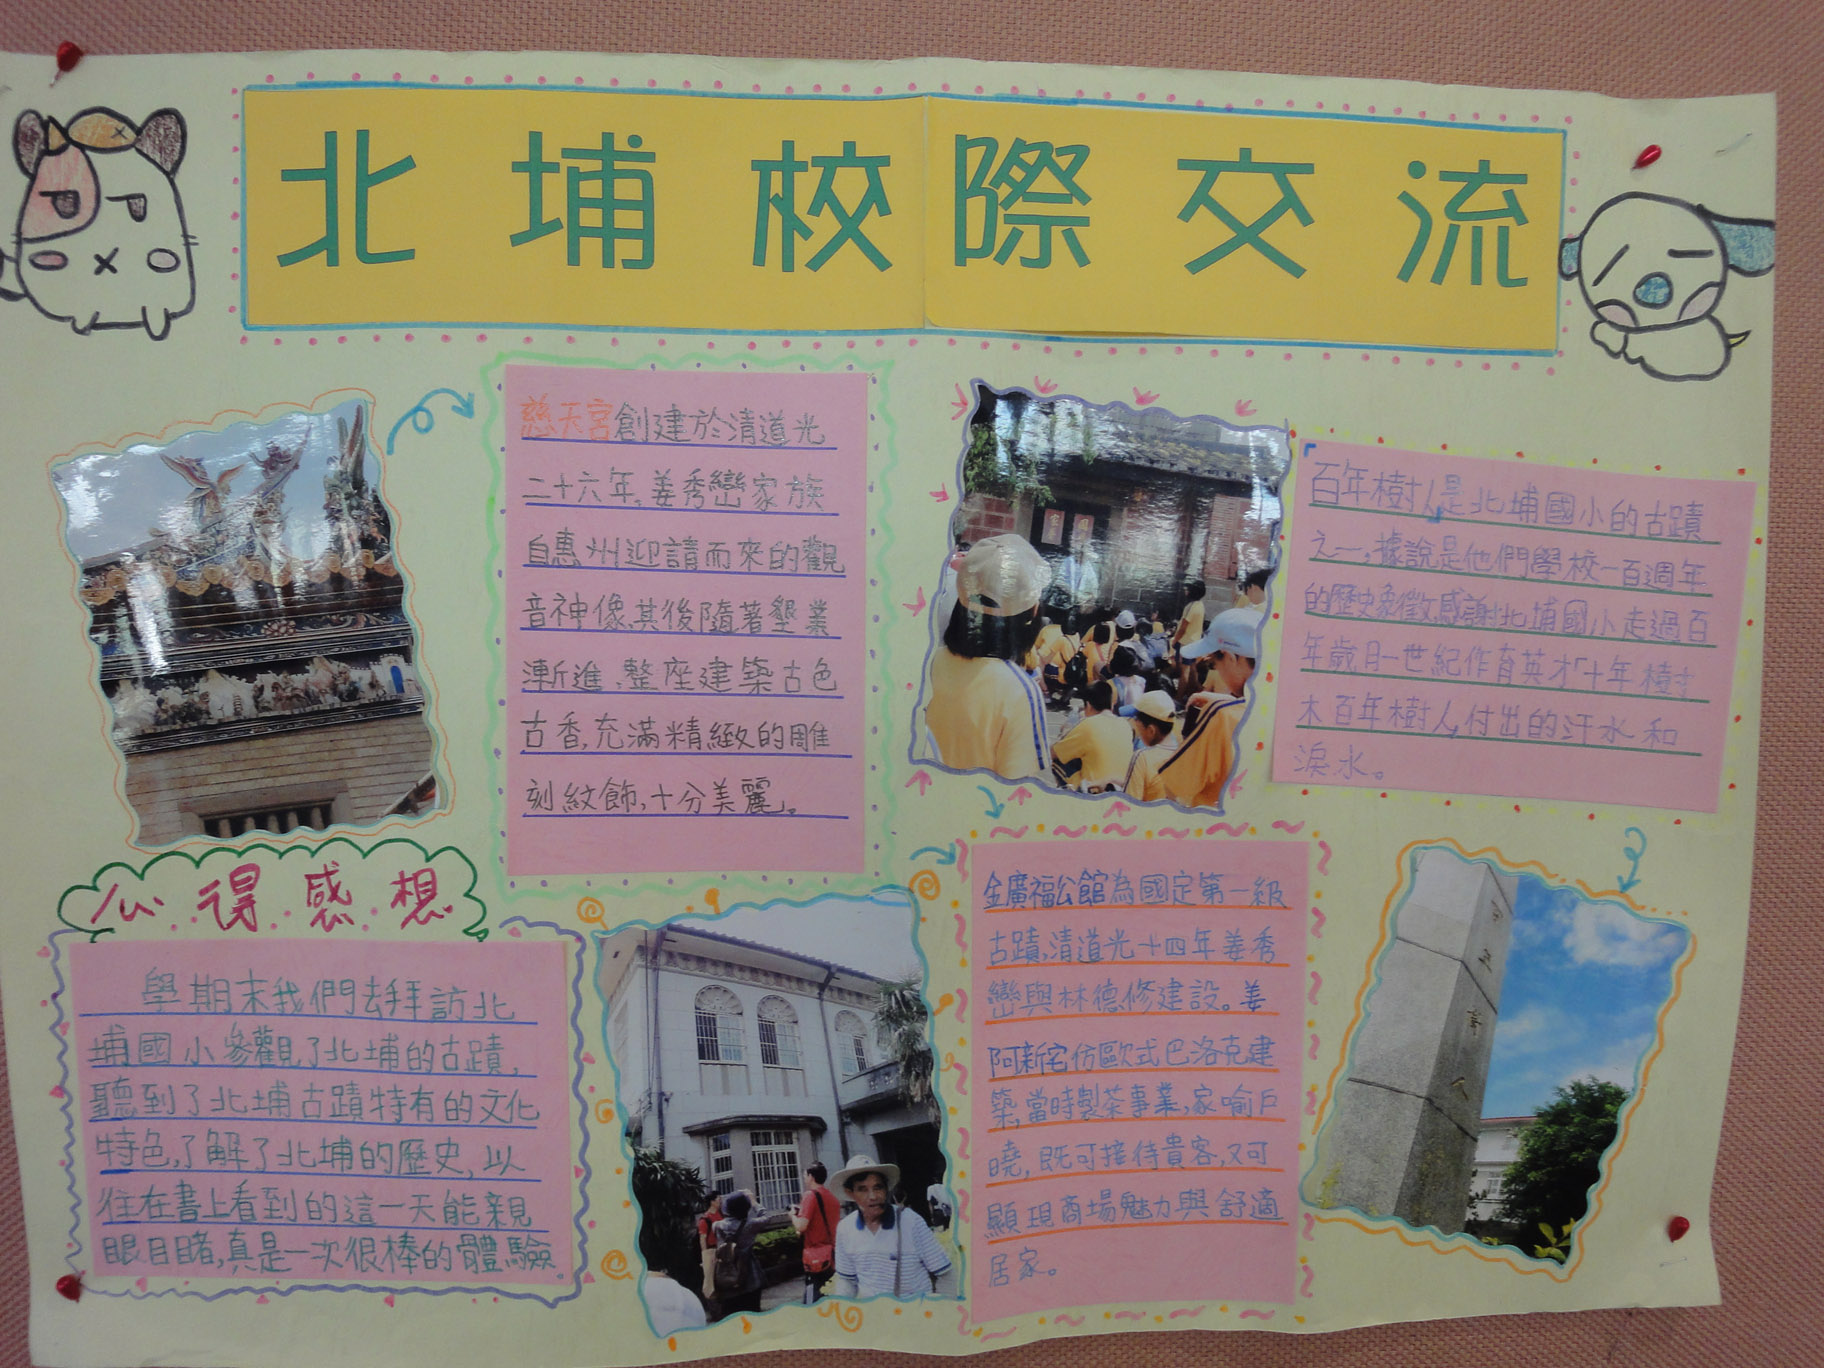 北埔校際交流
慈天宮創建於清道光
二十六年,姜秀巒家族
自惠州迎請而來的觀
音神像,其後隨著墾業
漸進,整座建築古色
古香,充滿精緻的雕
刻紋飾,十分美麗。
百年樹人是北埔國小的古蹟
之一,據說是他們學校一百週年
的歷史象徵,感謝北埔國小走過百
年歲月一世紀作育英才「十年樹
木百年樹人,付出的汗水和
淚水。
心得感想
學期末我們去拜訪北
埔國小參觀了北埔的古蹟,
聽到了北埔古蹟特有的文化
特色,了解了北埔的歷史,以
往在書上看到的這一天能親
眼目睹,真是一次很棒的體驗。
金廣福公館為國定第一級
古蹟,清道光十四年姜秀
巒與林德修建設。姜
阿新宅仿歐式巴洛克建
築,當時製茶事業,家喻戶
曉,既可接待貴客,又可
顯現商場魅力與舒適
居家。
百年樹人